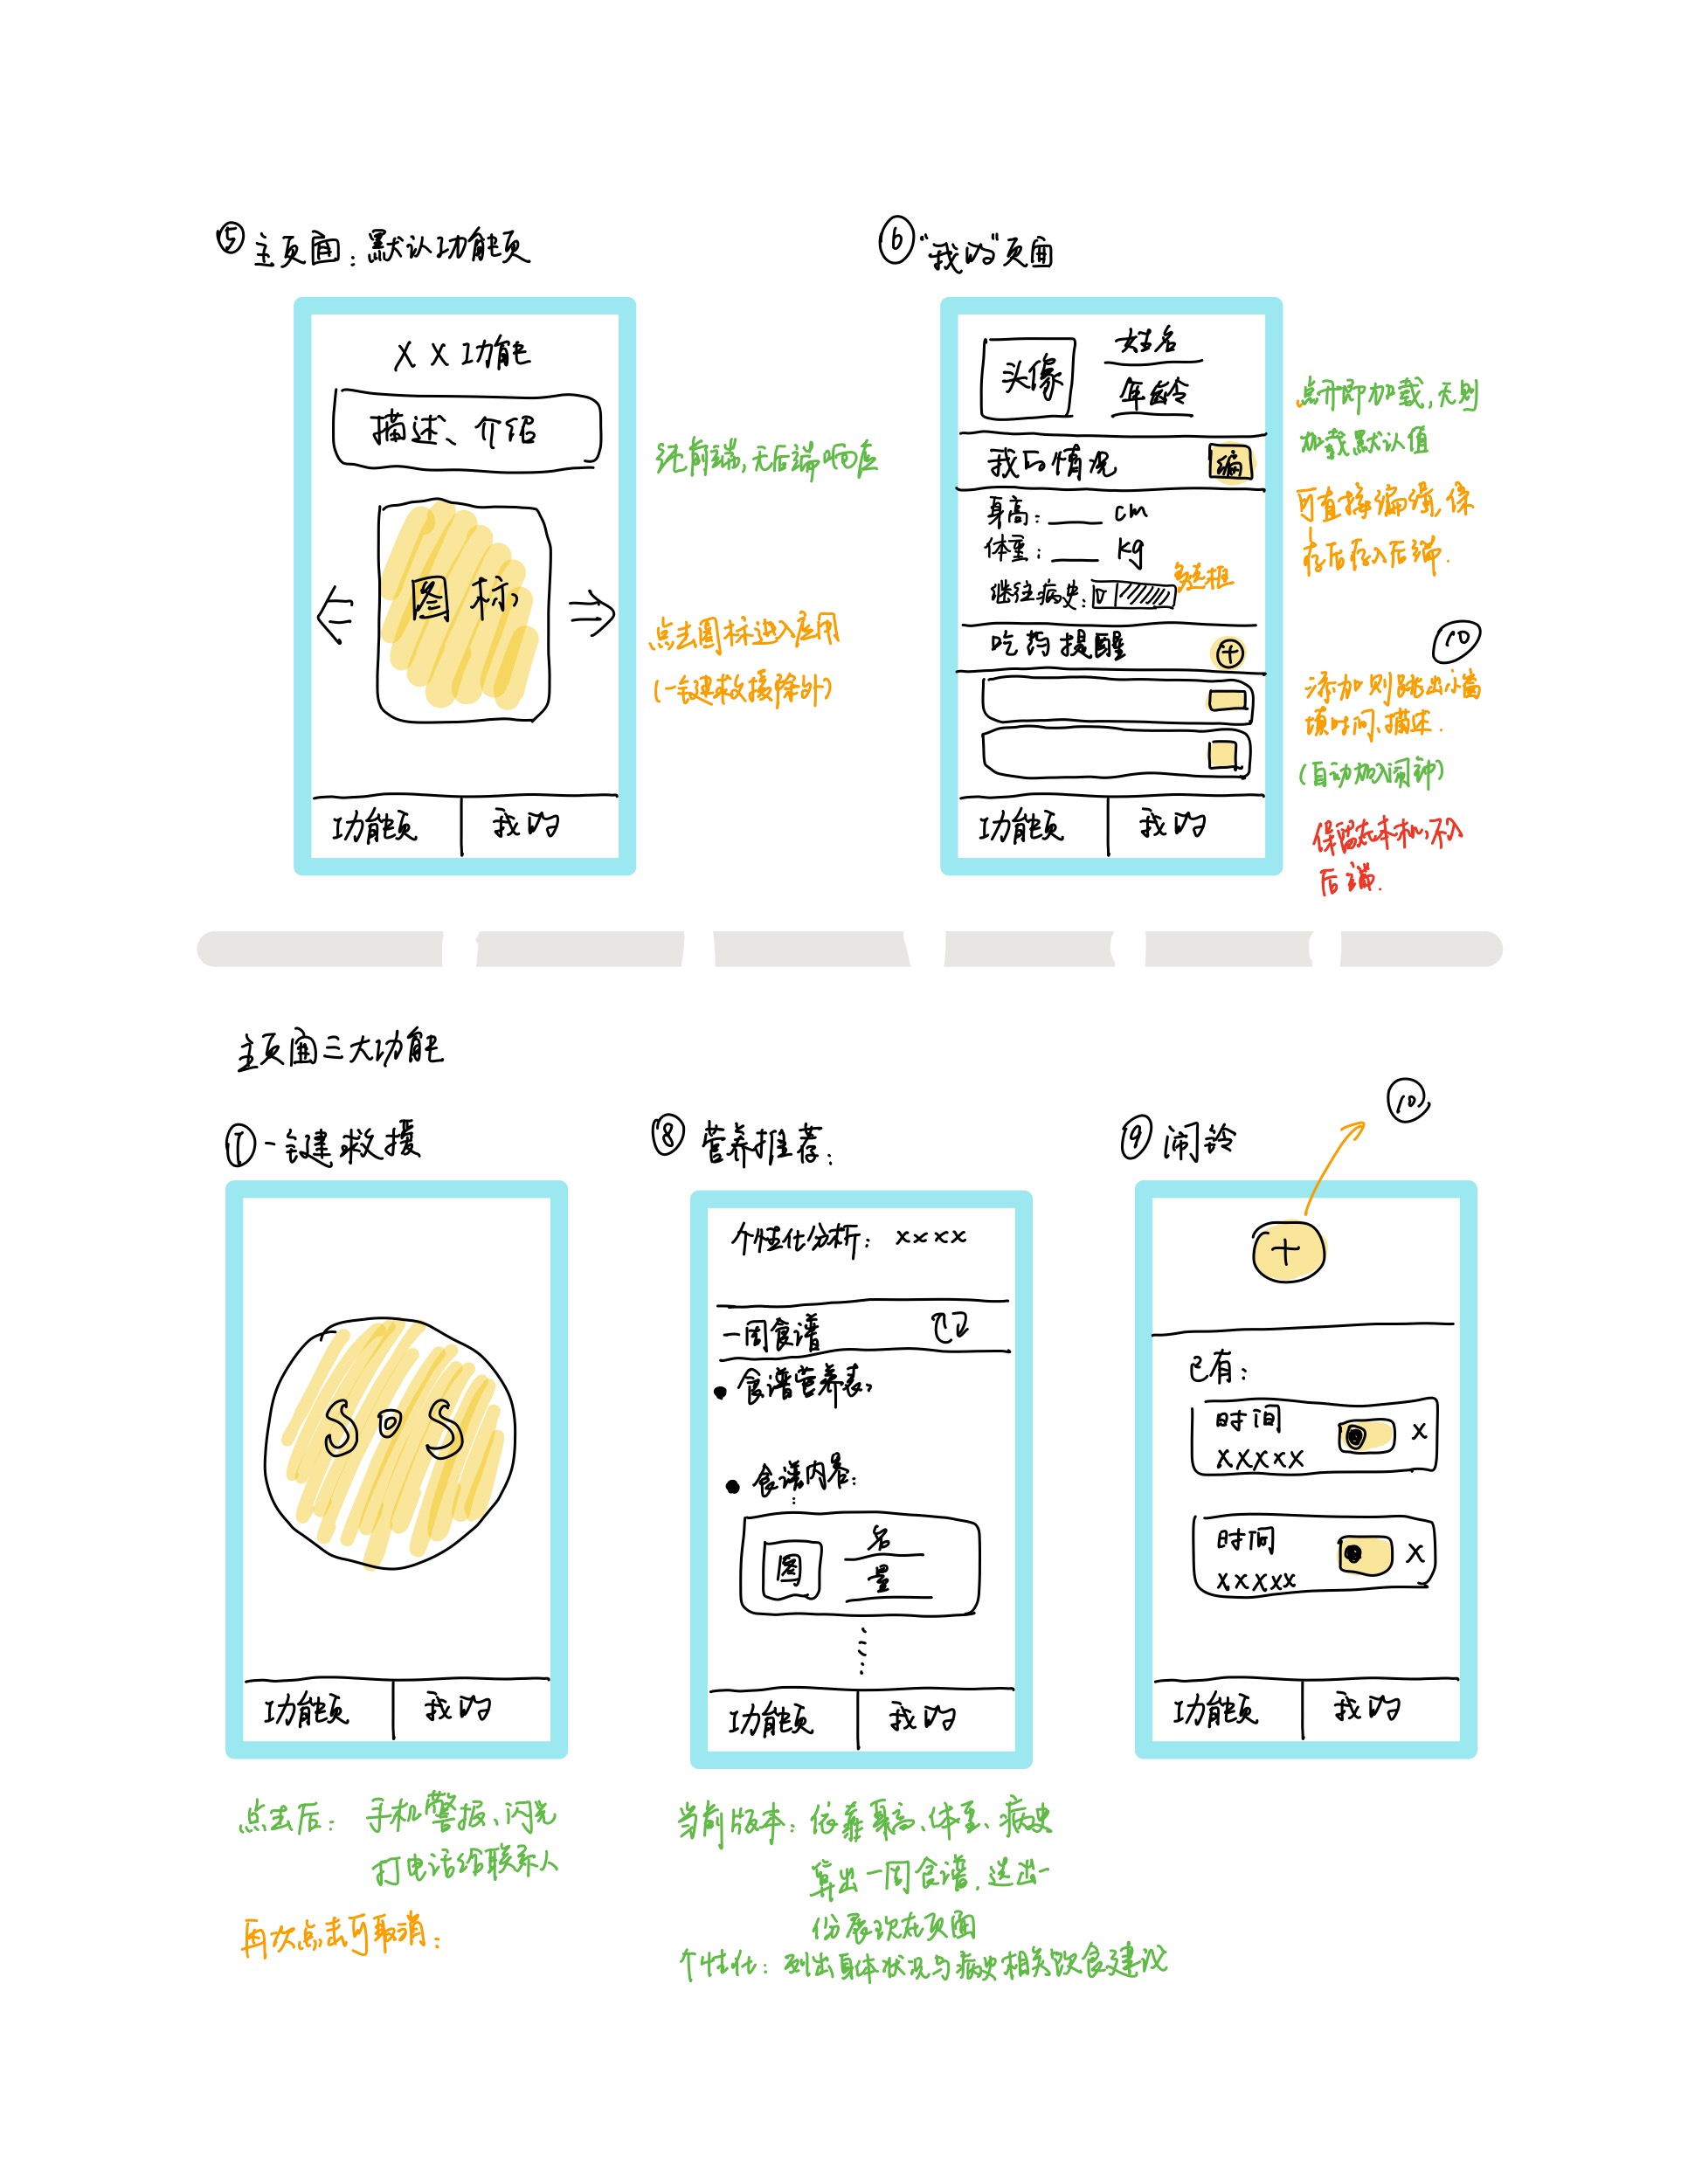 ⑤ 主页面：默认功能页
XX功能
描述、介绍
图标
功能页 我的
纯前端，无后端响应
点击图标进入应用
（一键救援除外）
⑥ “我的”页面
头像
姓名
年龄
我的情况 编
身高：____ cm
体重：____ kg
继往病史： 多选框
吃药提醒 +
功能页 我的
点开即加载，无则
加载默认值
可直接编辑，保
存后存入后端.
⑩
添加则跳出小窗
填时间、描述.
（自动加入闹钟）
保留在本机，不入
后端.
主页面三大功能
⑦ 一键救援
SOS
功能页 我的
点击后：手机警报、闪光
打电话给联系人
再次点击可取消；
⑧ 营养推荐：
个性化分析：xxxx
一周食谱
• 食谱营养表，
• 食谱内容：
图
名
量
功能页 我的
当前版本：依靠身高、体重、病史
算出一周食谱，选出一
份展现在页面
个性化：列出身体状况与病史相关饮食建议
⑨ 闹铃
⑩
+
已有：
时间
xxxxx
x
时间
xxxxx
x
功能页 我的